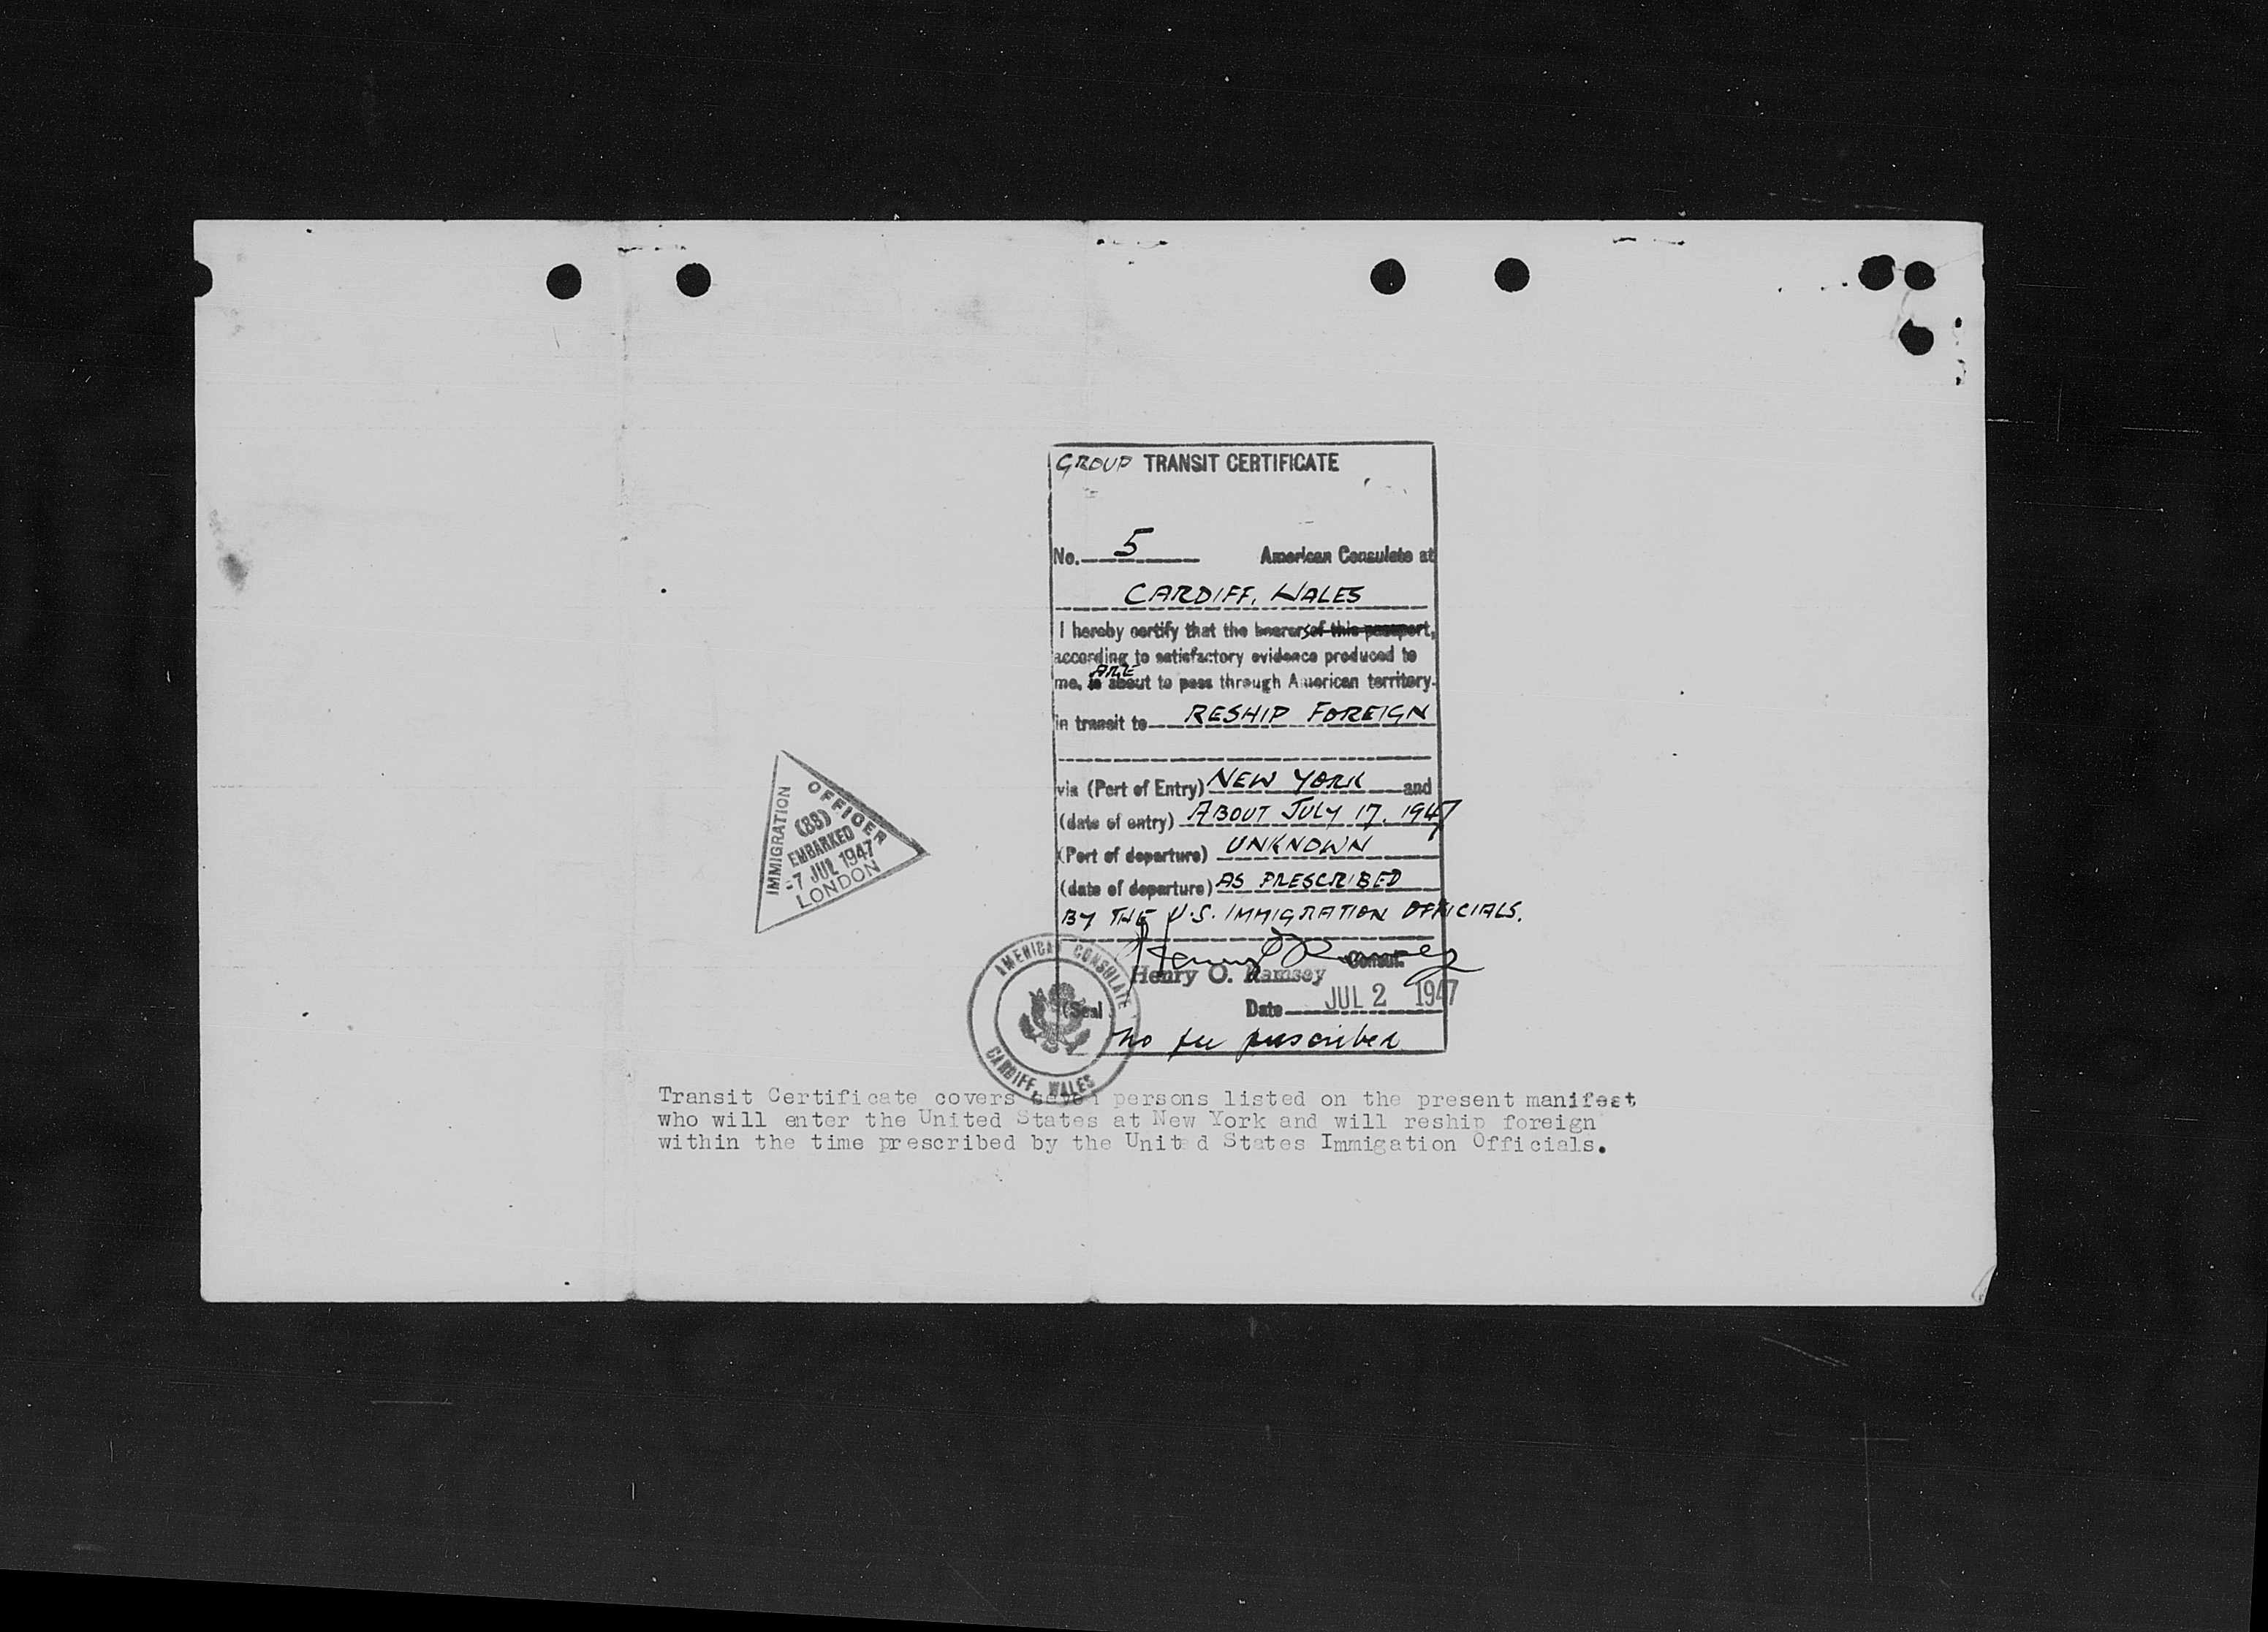 GROUP TRANSIT CERTIFICATE
No. 5 American Consulate at
CARDIFF, WALES
I hereby certify that the bearers of this passport,
according to satisfactory evidence produced to
ARE
me, is about to pass through American territory
in transit to RESHIP FOREIGN
via (Port of Entry) NEW YORK and
(date of entry) ABOUT JULY 17, 1947
(Port of departure) UNKNOWN
(date of departure) AS PRESCRIBED
BY THE U.S. IMMIGRATION OFFICIALS.
Henry O Ramsey
Henry O. Ramsey Consul.
(Seal Date JUL 2 1947
no fee prescribed
AMERICAN CONSULATE
CARDIFF, WALES
IMMIGRATION OFFICER
(88)
EMBARKED
-7 JUL 1947
LONDON
Transit Certificate covers seven persons listed on the present manifest
who will enter the United States at New York and will reship foreign
within the time prescribed by the Unit d States Immigation Officials.